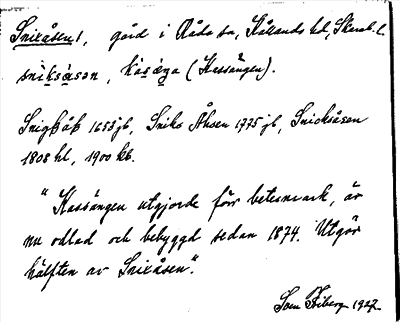 Snixåsen 1, gård i Råda sn, Kållands hd, Skarab. l.
snik̬såsən, kasäŋa (Kassängen).
Snigßåß 1653 jb, Sniks Åhsen 1775 jb, Snicksåsen
1808 hl, 1900 kb.
"Kassängen utgjorde förr betesmark, är
nu odlad och bebyggd sedan 1874. Utgör
hälften av Snixåsen".
Sven Friberg 1927.